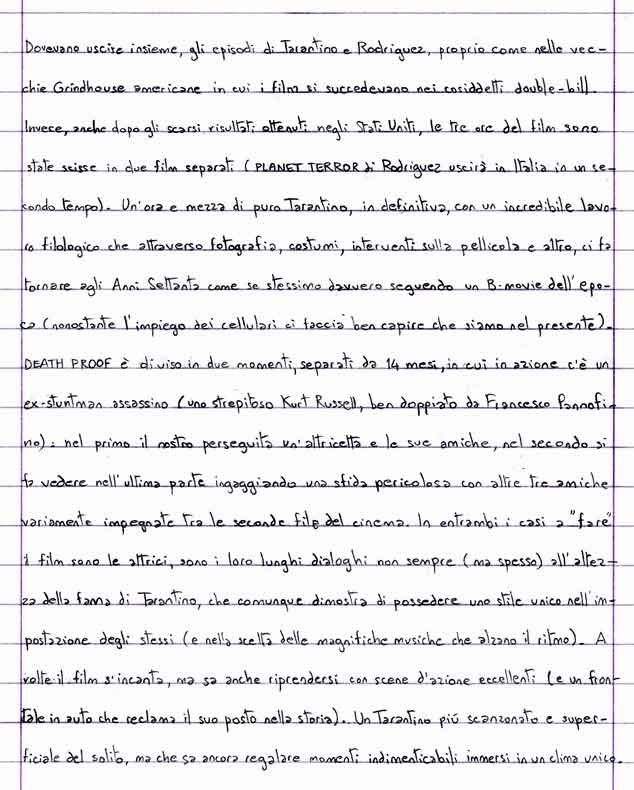 Dovevano uscire insieme, gli episodi di Tarantino e Rodriguez, proprio come nelle vec-
chie Grindhouse americane in cui i film si succedevano nei cosiddetti double-bill.
Invece, anche dopo gli scarsi risultati ottenuti negli Stati Uniti, le tre ore del film sono
state scisse in due film separati (PLANET TERROR di Rodriguez uscirà in Italia in un se-
condo tempo). Un'ora e mezza di puro Tarantino, in definitiva, con un incredibile lavo-
ro filologico che attraverso fotografia, costumi, interventi sulla pellicola e altro, ci fa
tornare agli Anni Settanta come se stessimo davvero seguendo un B-movie dell'epo-
ca (nonostante l'impiego dei cellulari ci faccia ben capire che siamo nel presente).
DEATH PROOF è diviso in due momenti, separati da 14 mesi, in cui in azione c'è un
ex-stuntman assassino (uno strepitoso Kurt Russell, ben doppiato da Francesco Pannofi-
no): nel primo il nostro perseguita un'attricetta e le sue amiche, nel secondo si
fa vedere nell'ultima parte ingaggiando una sfida pericolosa con altre tre amiche
variamente impegnate tra le seconde file del cinema. In entrambi i casi a "fare"
il film sono le attrici, sono i loro lunghi dialoghi non sempre (ma spesso) all'altez-
za della fama di Tarantino, che comunque dimostra di possedere uno stile unico nell'im-
postazione degli stessi (e nella scelta delle magnifiche musiche che alzano il ritmo). A
volte il film s'incanta, ma sa anche riprendersi con scene d'azione eccellenti (e un fron-
tale in auto che reclama il suo posto nella storia). Un Tarantino più scanzonato e super-
ficiale del solito, ma che sa ancora regalare momenti indimenticabili immersi in un clima unico.